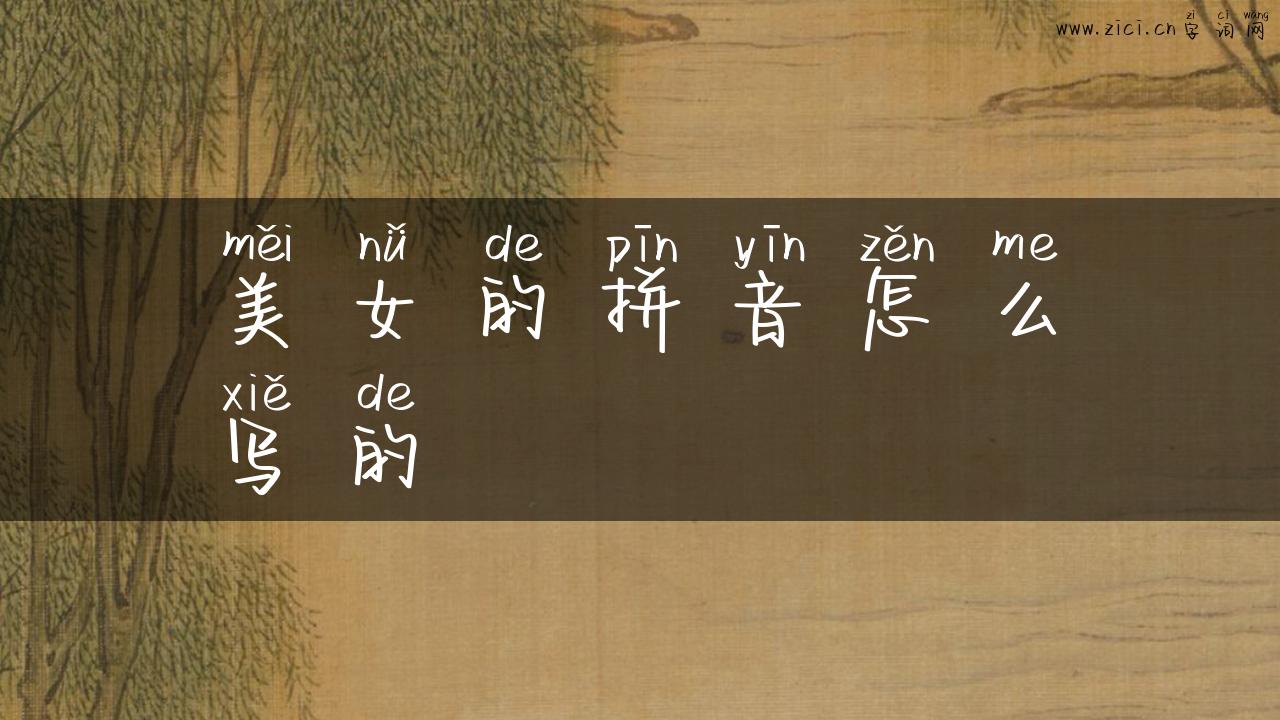 zì cí wǎng
www.zici.cn 字词网
měi nǚ de pīn yīn zěn me
美女的拼音怎么
xiě de
写的